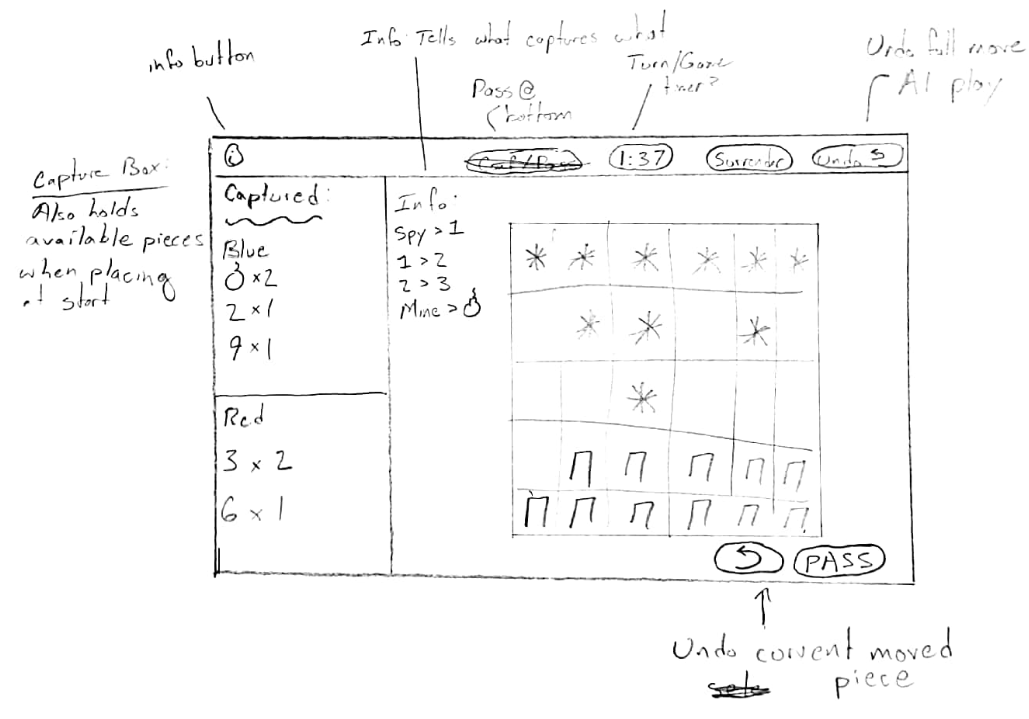 info button
Info: Tells what captures what
Pass @
bottom
Turn/Game
timer?
Undo full move
AI play
Capture Box:
Also holds
available pieces
when placing
at start
i
1:37
Surrender
Undo
Captured:
Blue
×2
2 ×1
9 ×1
Red
3 × 2
6 × 1
Info:
Spy > 1
1 > 2
2 > 3
Mine >
PASS
Undo current moved
piece